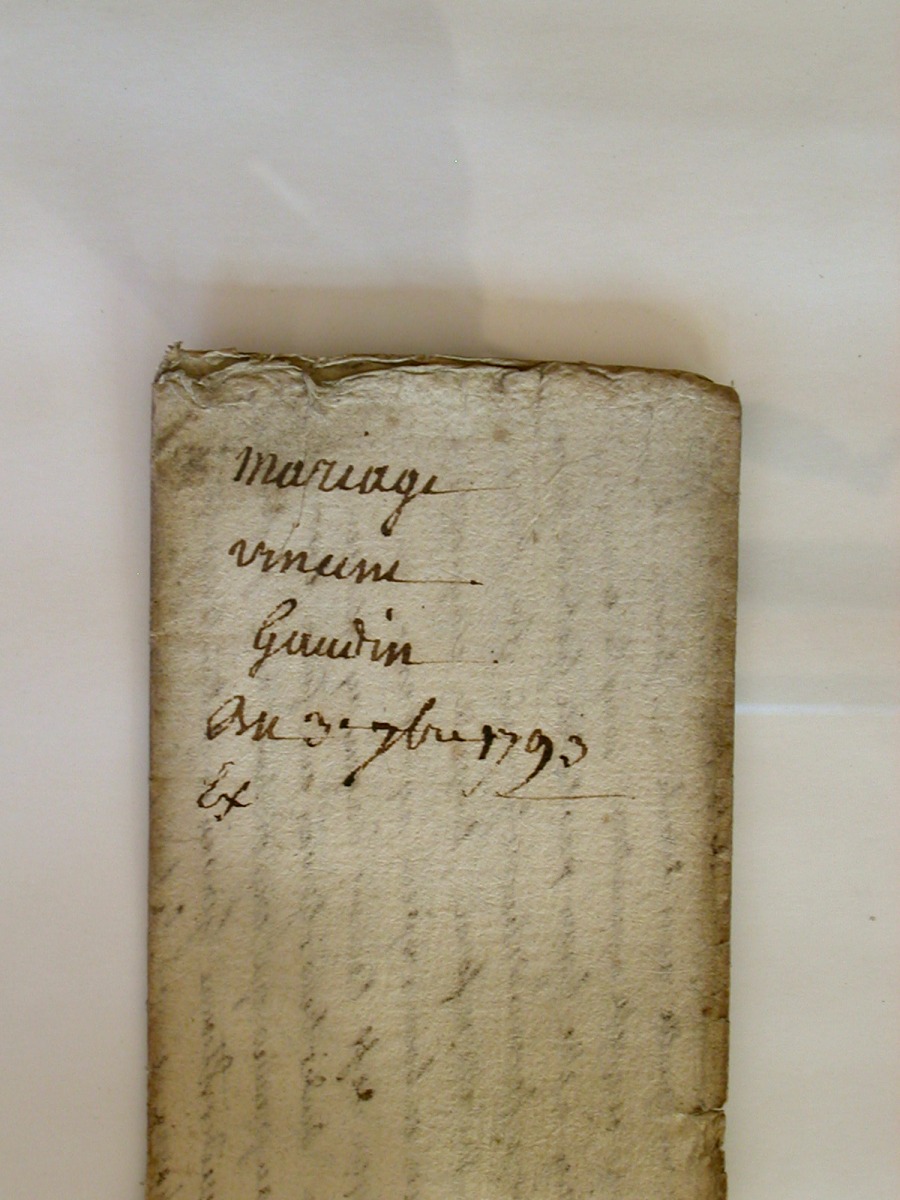 Mariage
vincent
Gaudin
Du 3e 7bre 1793
Ex